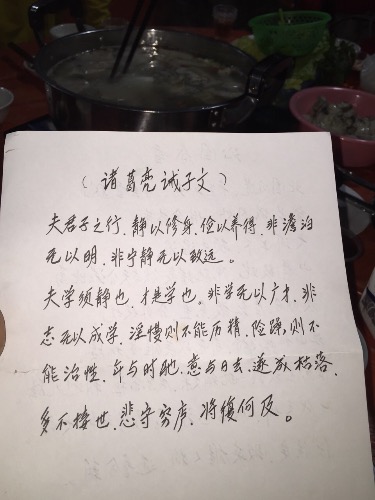 （诸葛亮诫子文）
夫君子之行、静以修身、俭以养得、非澹泊
无以明、非宁静无以致远。
夫学须静也、才是学也。非学无以广才、非
志无以成学、淫慢则不能历精、险躁、则不
能治性、年与时驰、意与日去、遂成枯落、
多不接世、悲守穷庐、将复何及。